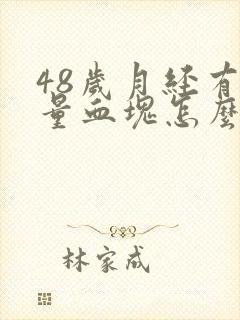 48歲月經有
量血塊怎麼
林家成